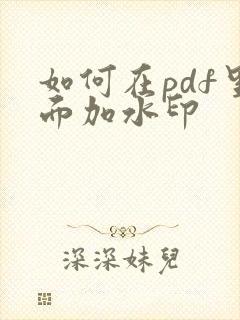 如何在pdf里
而加水印
深深妹兒